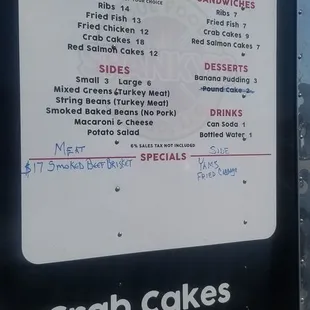 SANDWICHES
Ribs 14
Fried Fish 13
Fried Chicken 12
Crab Cakes 18
Red Salmon Cakes 12
Ribs 7
Fried Fish 7
Crab Cakes 9
Red Salmon Cakes 7
SIDES
Small 3 Large 6
Mixed Greens (Turkey Meat)
String Beans (Turkey Meat)
Smoked Baked Beans (No Pork)
Macaroni & Cheese
Potato Salad
DESSERTS
Banana Pudding 3
Pound Cake 2
DRINKS
Can Soda 1
Bottled Water 1
6% SALES TAX NOT INCLUDED
SPECIALS
MEAT
$17 SMOKED BEEF BRISKET
SIDE
YAMS
FRIED CABBAGE
Crab Cakes